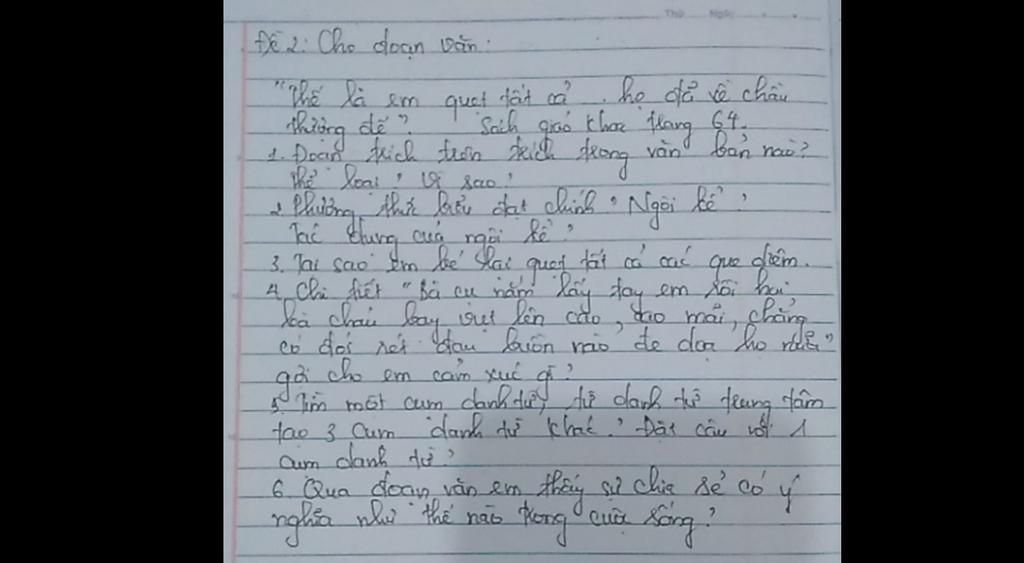 Thứ Ngày
Đề 2: Cho đoạn văn:
"Thế là em quẹt tất cả... họ đã về chầu
thượng đế". Sách giáo khoa trang 64.
1. Đoạn trích trên trích trong văn bản nào?
Thể loại? Vì sao?
2. Phương thức biểu đạt chính? Ngôi kể?
Tác dụng của ngôi kể?
3. Tại sao em bé lại quẹt tất cả các que diêm.
4. Chi tiết "Bà cụ nắm lấy tay em rồi hai
bà cháu bay vụt lên cao, cao mãi, chẳng
có đói rét đau buồn nào đe dọa họ nữa"
gợi cho em cảm xúc gì?
5. Tìm một cụm danh từ, từ danh từ trung tâm
tạo 3 cụm danh từ khác? Đặt câu với 1
cụm danh từ?
6. Qua đoạn văn em thấy sự chia sẻ có ý
nghĩa như thế nào trong cuộc sống?